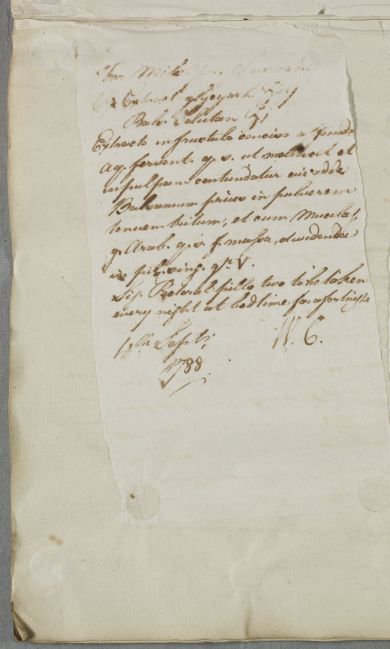 For Miss
Rx Extract. glycyrrh. ʒiij
Bals. Tolutan ʒi
Extracto in frustula conciso affunde
aq. fervent. q. s. ut mollescat et
in pulpam contundatur cui adde
Balsamum prius in pulverem
tenuem tritum, et cum Mucilag.
g. Arab. q. s. f. massa, dividenda
in pil. sing. gr. V.
Sig. Pectoral pills two to be taken
every night at bedtime, for a fortnight
Septr.
W. C.
1788